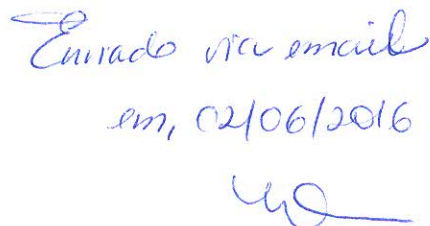 Enviado via email
em, 02/06/2016